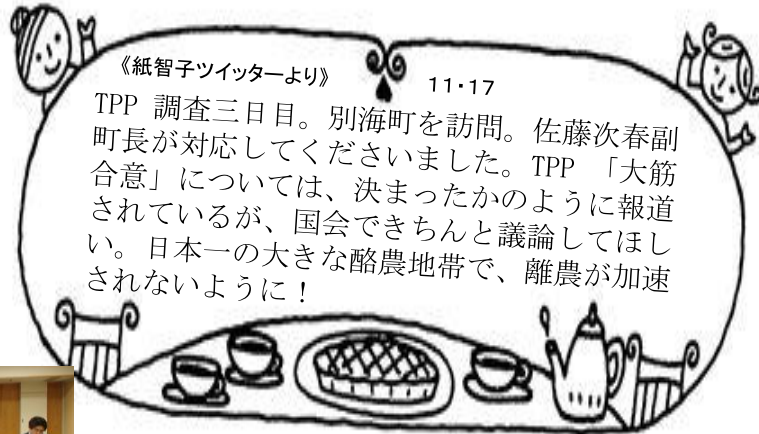 《紙智子ツイッターより》 11・17
TPP 調査三日目。別海町を訪問。佐藤次春副
町長が対応してくださいました。TPP 「大筋
合意」については、決まったかのように報道
されているが、国会できちんと議論してほし
い。日本一の大きな酪農地帯で、離農が加速
されないように！